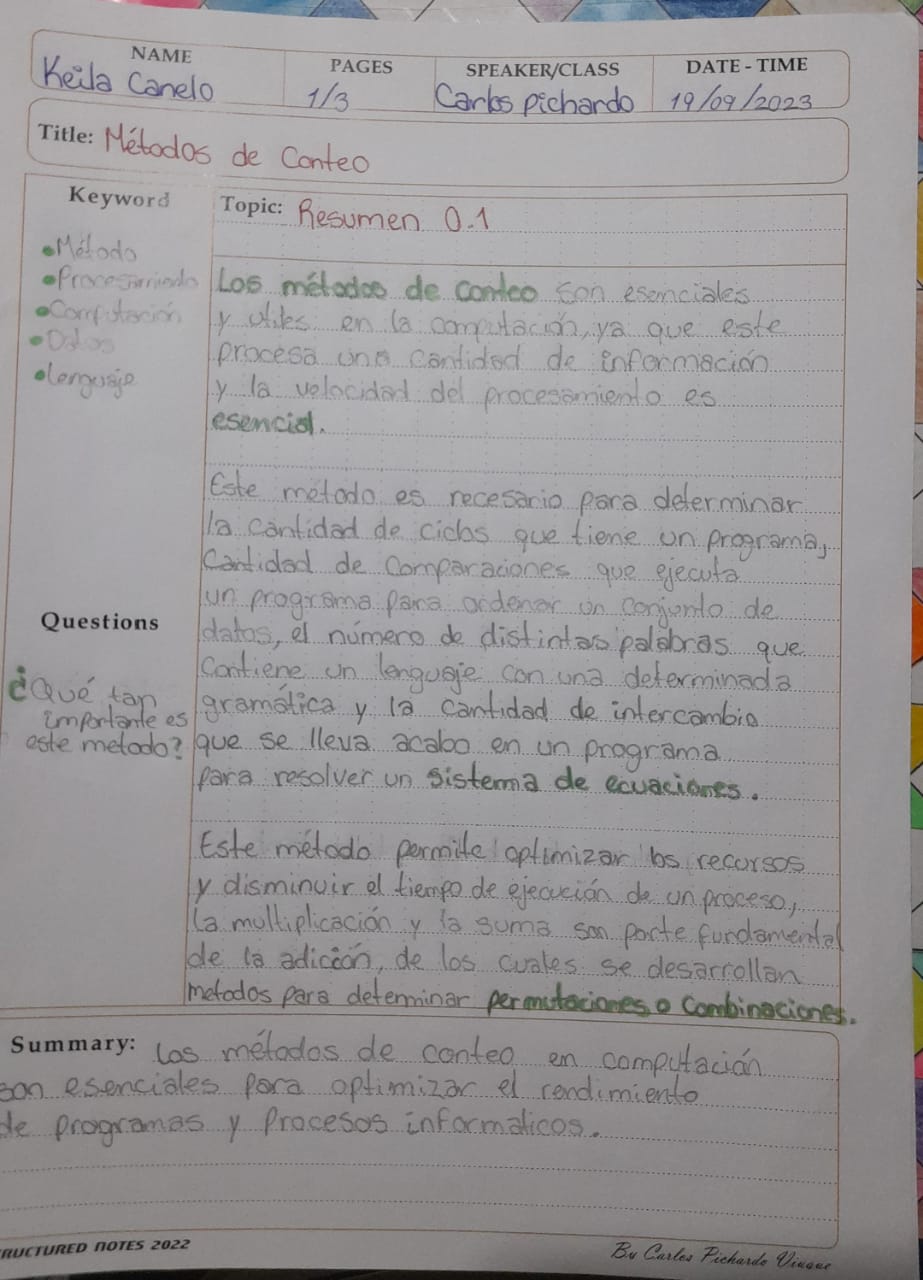 NAME
Keila Canelo
PAGES
1/3
SPEAKER/CLASS
Carlos Pichardo
DATE - TIME
19/09/2023
Title: Métodos de Conteo
Keyword
• Método
• Procesamiento
• Computación
• Datos
• Lenguaje
Questions
¿Qué tan
importante es
este metodo?
Topic: Resumen 0.1
Los métodos de conteo son esenciales
y utiles en la computación, ya que este
procesa una cantidad de información
y la velocidad del procesamiento es
esencial.
Este método es necesario para determinar
la cantidad de ciclos que tiene un programa,
Cantidad de comparaciones que ejecuta
un programa para ordenar un conjunto de
datos, el número de distintas palabras que
contiene un lenguaje con una determinada
gramática y la cantidad de intercambio
que se lleva acabo en un programa
para resolver un sistema de ecuaciones.
Este método permite optimizar los recursos
y disminuir el tiempo de ejecución de un proceso,
la multiplicación y la suma son parte fundamental
de la adición, de los cuales se desarrollan
metodos para determinar permutaciones o Combinaciones.
Summary: Los métodos de conteo en computación
son esenciales para optimizar el rendimiento
de programas y procesos informaticos.
RUCTURED NOTES 2022
By Carlos Pichardo Viuque